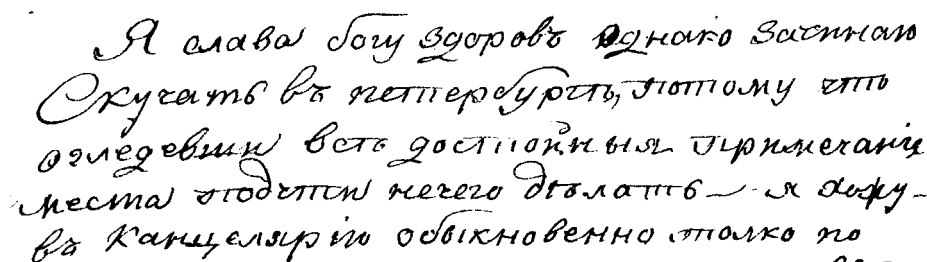 Я слава богу здоровъ однако зачинаю
Скучать въ петтербургѣ, потому что
огледевши всѣ достойныя примечания
места подчти нечего дѣлать — я хожу
въ Канцелярію обыкновенно толко по